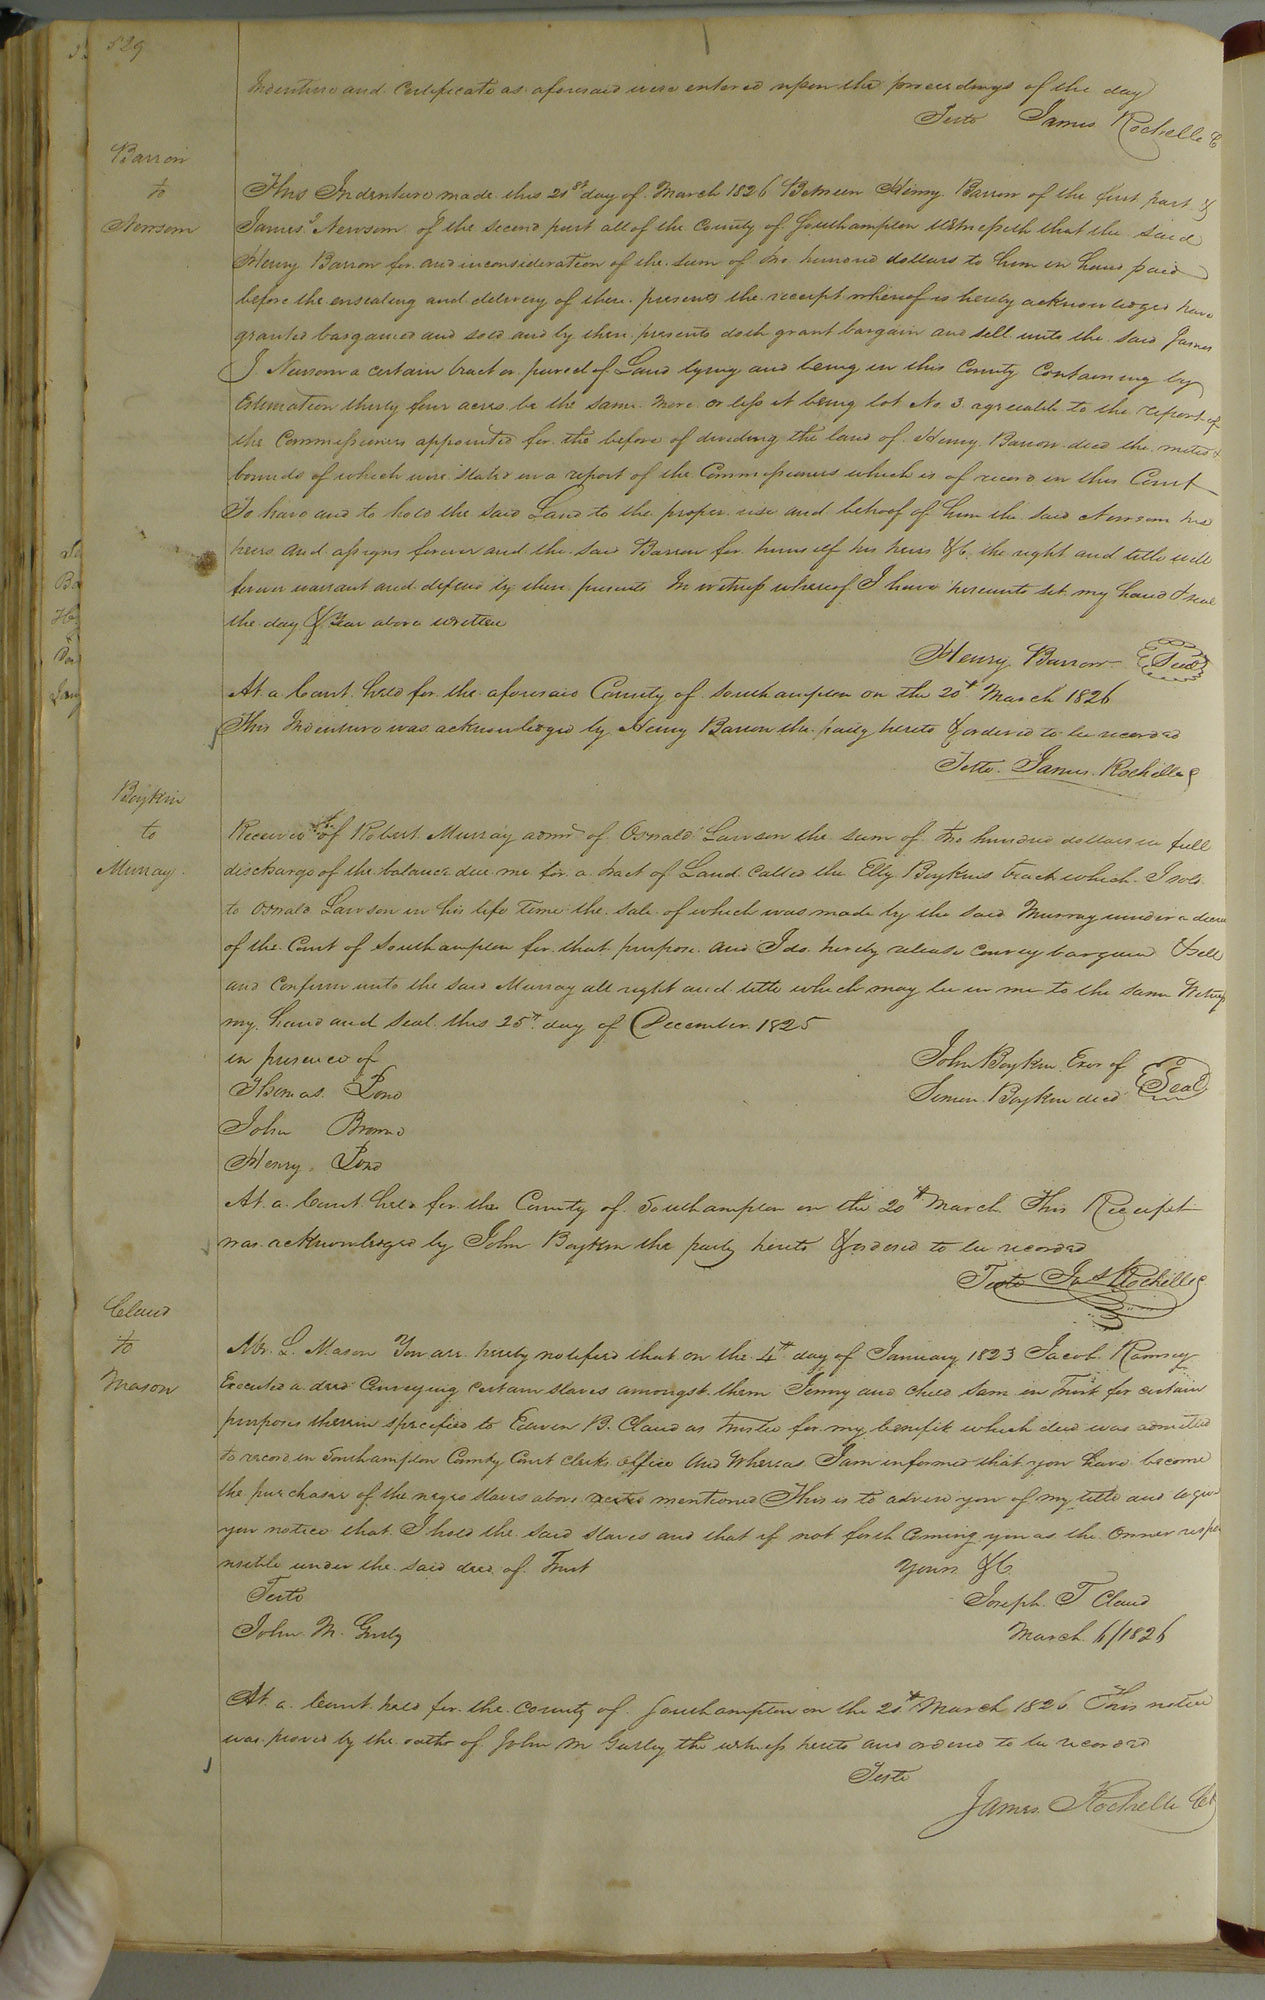 529
Indenture and Certificate as aforesaid were entered upon the proceedings of the day
Teste James Rochelle C
Barrow
to
Newsom
This Indenture made this 20st day of March 1826 Between Henry Barrow of the first part &
James J Newsom of the second part all of the County of Southampton Witnesseth that the said
Henry Barrow for and in consideration of the sum of two hundred dollars to him in hand paid
before the ensealing and delivery of these presents the receipt whereof is hereby acknowledged have
granted bargained and sold and by these presents doth grant bargain and sell unto the said James
J. Newsom a certain tract or parcel of Land lying and being in this County Containing by
Estimation thirty four acres be the same more or less it being lot No. 3 agreeable to the report of
the Commissioners appointed for the before of dividing the land of Henry Barrow decd the metes &
bounds of which were stated in a report of the Commissioners which is of record in this Court
To have and to hold the said Land to the proper use and behoof of him the said Newsom his
heirs and assigns forever and the said Barrow for himself his heirs &c the right and title will
forever warrant and defend by these presents In witness whereof I have hereunto set my hand & seal
the day & Year above written
Henry Barrow Seal
At a Court held for the aforesaid County of Southampton on the 20th March 1826
This Indenture was acknowledged by Henry Barrow the party hereto & ordered to be recorded
Teste James Rochelle C
Boykin
to
Murray
Received of Robert Murray admr of Oswald Lawson the sum of two hundred dollars in full
discharge of the balance due me for a tract of Land Called the Elly Boykins tract which I sold
to Oswald Lawson in his life Time the sale of which was made by the said Murray under a decree
of the Court of Southampton for that purpose and I do hereby release convey bargain & sell
and Confirm unto the said Murray all right and title which may be in me to the same Witness
my hand and Seal this 25th day of December 1825
in presence of
John Boykin Exor of
Simon Boykin decd Seal
Thomas Pond
John Brown
Henry Pond
At a Court held for the County of Southampton on the 20th March This Receipt
was acknowledged by John Boykin the party hereto & ordered to be recorded
Teste Jas Rochelle C
Claud
to
Mason
Mr. L. Mason You are hereby notified that on the 4th day of January 1823 Jacob Ramsey
Executed a deed Conveying certain slaves amongst them Jenny and child Sam in Trust for certain
purposes therein specified to Edwin B. Claud as trustee for my benefit which deed was admitted
to record in Southampton County Court clerks office And Whereas I am informed that you have become
the purchaser of the negro slaves above mentioned This is to advise you of my title and to give
you notice that I hold the said slaves and that if not forth coming you as the owner respo
nsible under the said deed of Trust
Yours &C
Teste
Joseph T Claud
John M. Gurly
March 6/1826
At a Court held for the County of Southampton on the 20th March 1826 This notice
was proved by the oath of John M Gurley the witness hereto and ordered to be recorded
Teste
James Rochelle Ct